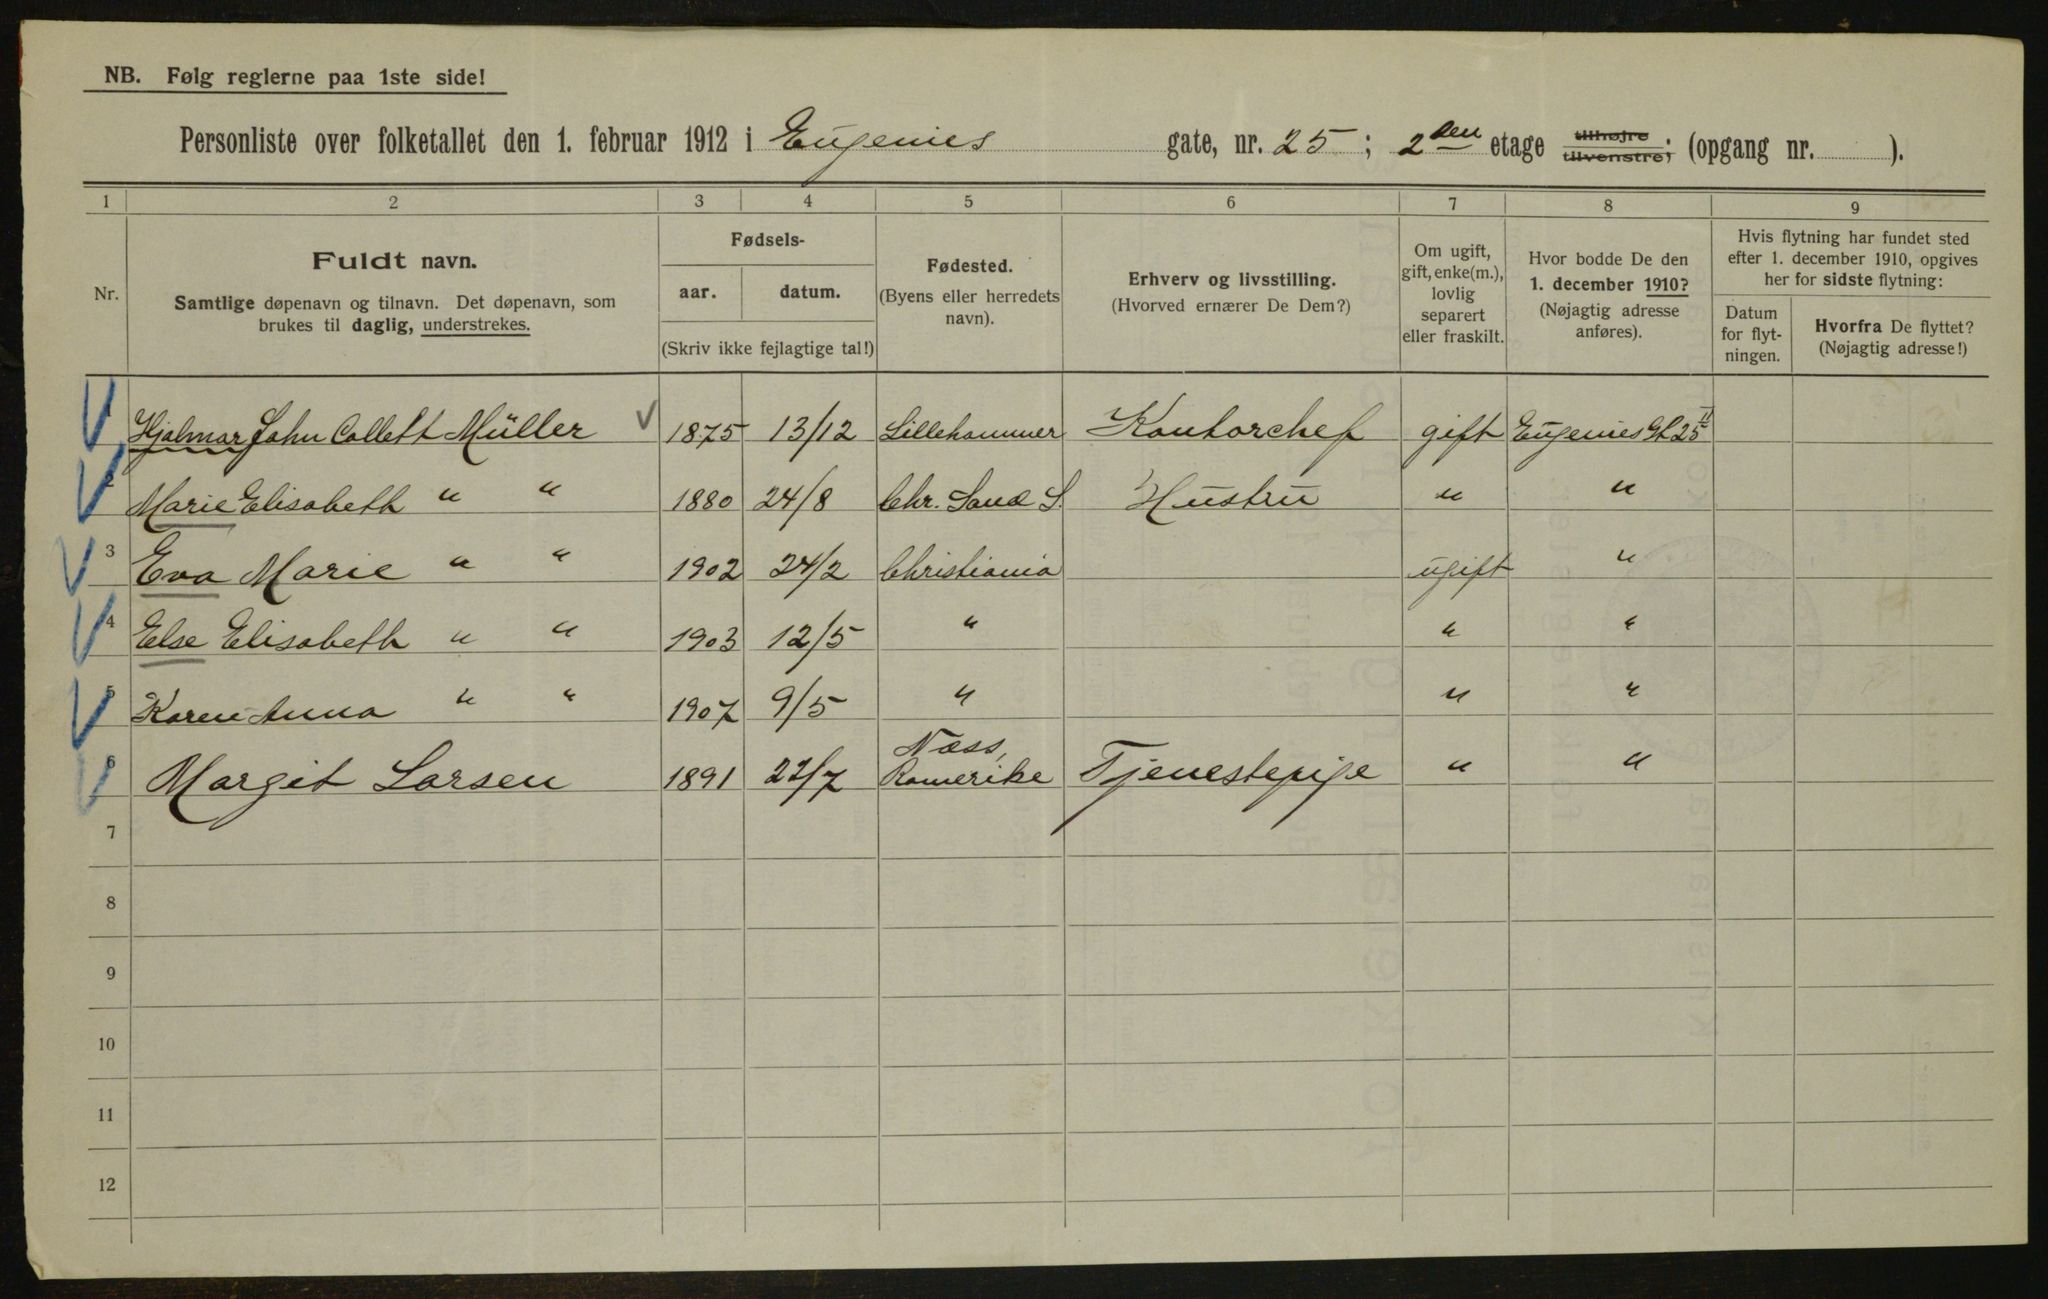 NB. Følg reglerne paa 1ste side!
Personliste over folketallet den 1. februar 1912 i Eugenies gate, nr. 25; 2den etage tilhøjre tilvenstre; (opgang nr. ).
1 2 3 4 5 6 7 8 9
Nr.
Fuldt navn.
Samtlige døpenavn og tilnavn. Det døpenavn, som
brukes til daglig, understrekes.
Fødsels-
aar. datum.
(Skriv ikke fejlagtige tal!)
Fødested.
(Byens eller herredets
navn).
Erhverv og livsstilling.
(Hvorved ernærer De Dem?)
Om ugift,
gift, enke(m.),
lovlig
separert
eller fraskilt.
Hvor bodde De den
1. december 1910?
(Nøjagtig adresse
anføres).
Hvis flytning har fundet sted
efter 1. december 1910, opgives
her for sidste flytning:
Datum
for flyt-
ningen.
Hvorfra De flyttet?
(Nøjagtig adresse!)
1 Hjalmar John Collett Müller 1875 13/12 Lillehammer Kontorchef gift Eugenies Gt. 25 II
2 Marie Elisabeth " " 1880 24/8 Chr. Sand S. Hustru " "
3 Eva Marie " " 1902 24/2 Christiania ugift "
4 Else Elisabeth " " 1903 12/5 " " "
5 Karen Anna " " 1907 9/5 " " "
6 Margit Larsen 1891 22/7 Næss, Romerike Tjenestepige " "
7
8
9
10
11
12